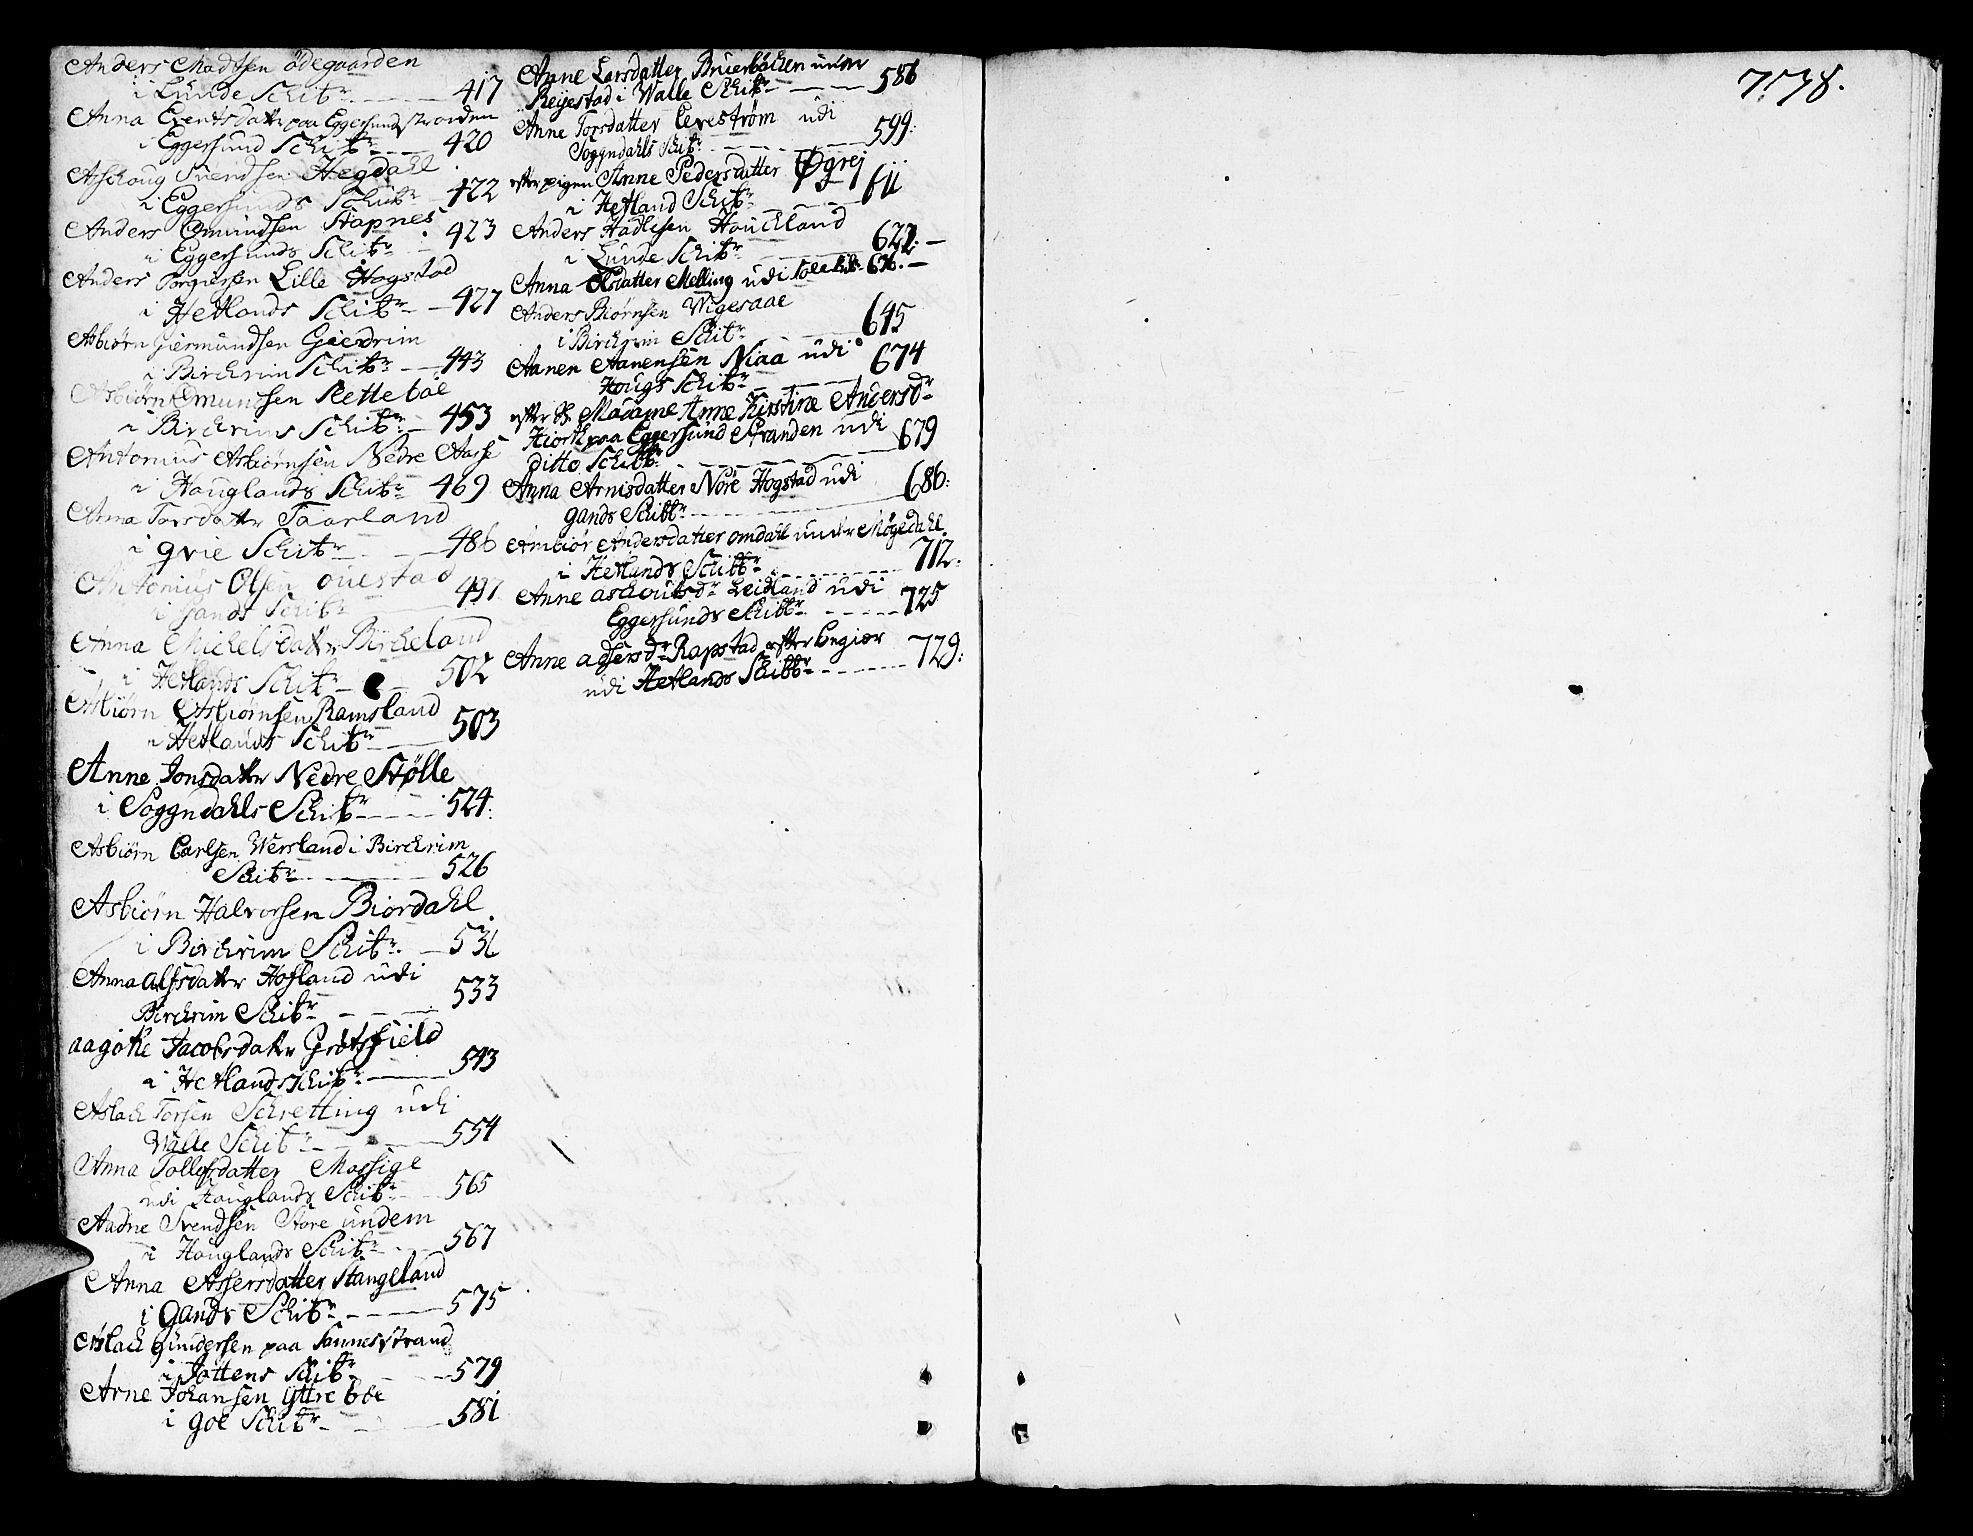 Anders Madtsen ödegaarden
i Lunde Schibr. 417
Anna Evertsdattr paa Eggersundstranden
i Eggersund Schibr. 420
Aschoug Svendsen Hegdahl
i Eggersunds Schibr. 422
Anders Omundsen Stapnes
i Eggersunds Schibr. 423
Anders Torgiersen Lille Hogstad
i Hetlands Schibr. 427
Asbiørn Giermundsen Gierdrim
i Birchrim Schibr. 443
Asbiørn Omundsen Settebøe
i Birchrims Schibr. 453
Antonius Asbiørnsen Nedre Aase
i Houglands Schibr. 469
Anna Torsdattr Taarland
i qvie Schibr. 486
Antonius Olsen ouestad
i Gands Schibr. 497
Anna Michelsdattr Bircheland
i Hetlands Schibr. 502
Asbiørn Asbiørnsen Ramsland
i Hetlands Schibr. 503
Anne Jonsdattr Nedre Stølle
i Soggndahls Schibr. 524
Asbiørn Carlsen Wersland i Birchrim
Schibr. 526
Asbiørn Halvorsen Biordahl
i Birchrim Schibr. 531
Anna Alfsdattr Hofland udi
Birchrim Schibr. 533
aagothe Jacobsdattr Grøtsfield
i Hetlands Schibr. 543
Aslach Torsen Schretting udi
Walle Schibr. 554
Anna Tollefsdatter Mossige
udi Houglands Schibr. 565
Aadne Svendsen Store undem
i Houglands Schibr. 567
Anna Assersdatter Stangeland
i Gands Schibr. 575
Aslach Gundersen paa Sannesstrand
i Jattens Schibr. 579
Arne Johansen Yttre bøe
i goe Schibr. 581
Anne Larsdatter Bruerbachen under
Reyestad i Walle Schibr. 586
Anne Torsdatter Eerestrøm udi
Soggndahls Schibr. 599
efter pigen Anne Pedersdatter Øgrej
i Hetland Schibr. 611
Anders Hadlesen Houchland
i Lunde Schibr. 622
Anna Olsdatter Melling udi Soele Schib. 636
Anders Biørnsen Wigesaae
i Birchrim Schibr. 645
Aanen Aanensen Niaa udi
Hougs Schibr. 674
efter Sl. Madame Anne Kirstine Andersdr
Hiorth paa Eggersund Stranden udi
ditto Schibbr. 679
Anna Arnisdatter Nore Hogstad udi
gands Schibbr. 686
Ambiør Andersdatter omdahl under Møgedahl
i Hetlands Schibbr. 712
Anne aschoulsdr Leidland udi
Eggersunds Schibbr. 725
Anne adsersdr Rapstad efter begiær
udi Hetlands Schibbr. 729
7738.